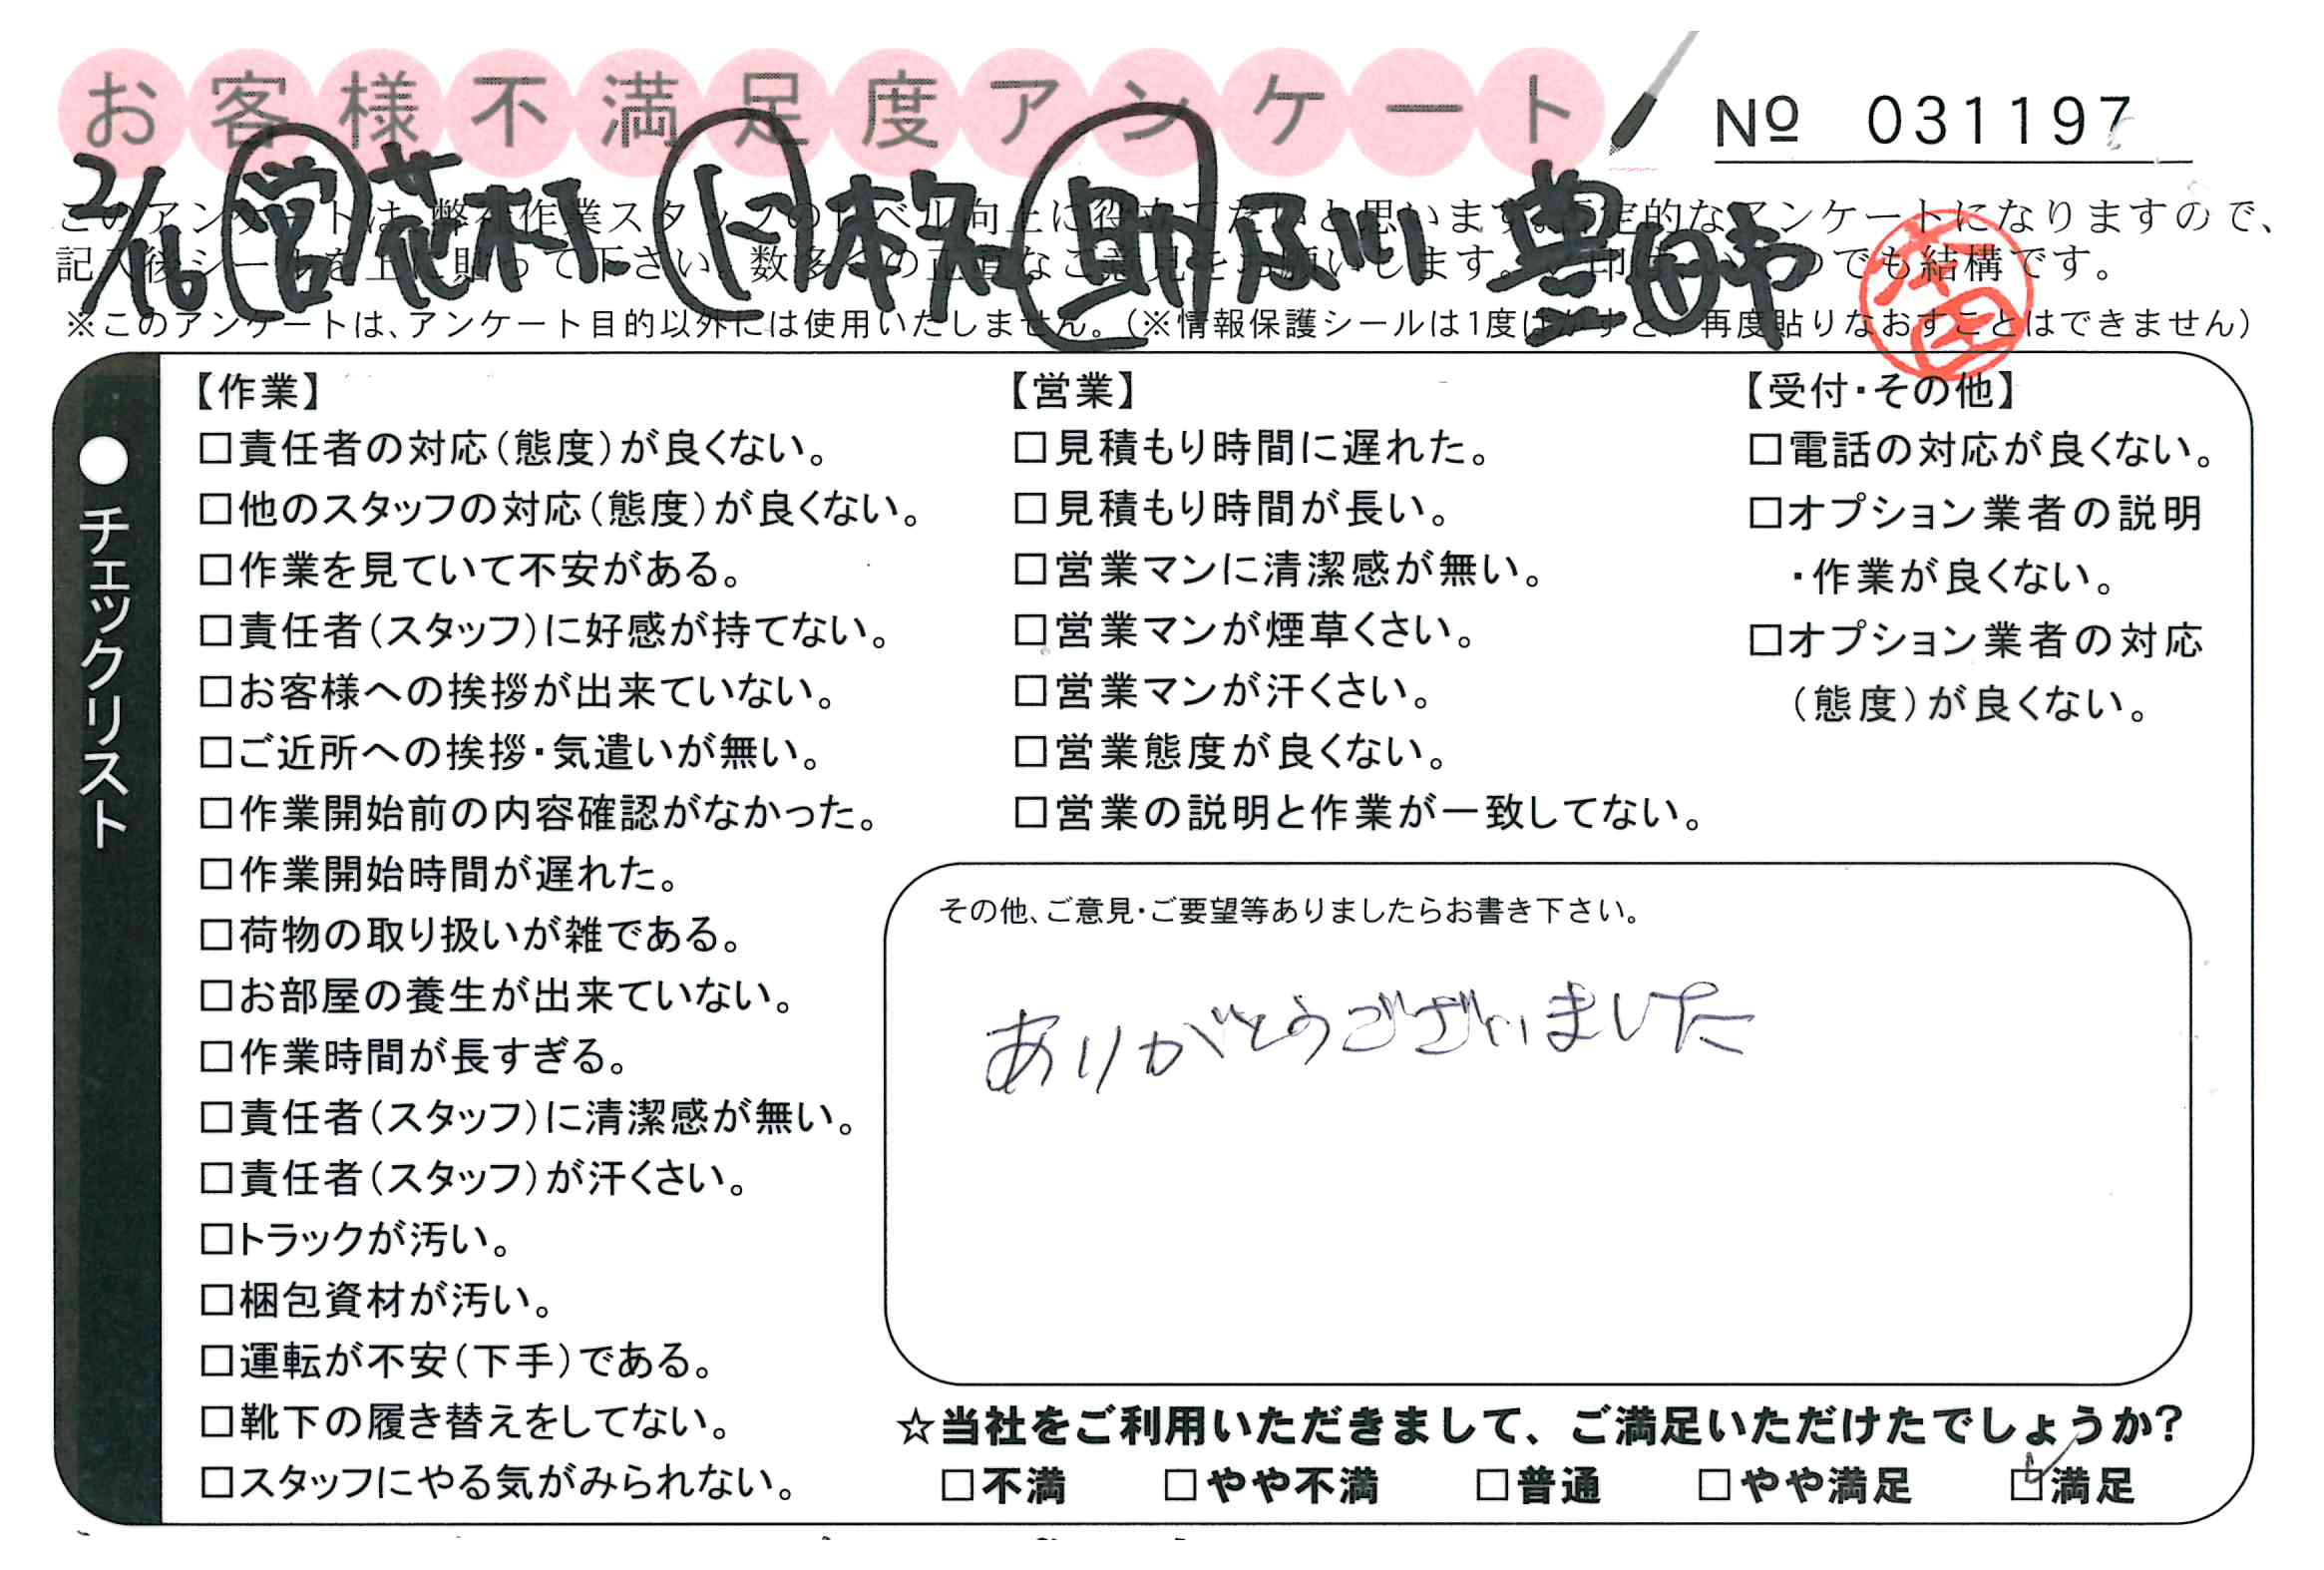 お客様不満足度アンケート
№ 031197
2/16 営 花村 本名 助 及川 豊田市
このアンケートは、弊社作業スタッフのレベル向上に役立てたいと思います。定的なアンケートになりますので、
記入後シールを上に貼って下さい。数多くの正直なご意見をお願いします。でも結構です。
※このアンケートは、アンケート目的以外には使用いたしません。（※情報保護シールは1度はがすと、再度貼りなおすことはできません）
●チェックリスト
【作業】
□責任者の対応（態度）が良くない。
□他のスタッフの対応（態度）が良くない。
□作業を見ていて不安がある。
□責任者（スタッフ）に好感が持てない。
□お客様への挨拶が出来ていない。
□ご近所への挨拶・気遣いが無い。
□作業開始前の内容確認がなかった。
□作業開始時間が遅れた。
□荷物の取り扱いが雑である。
□お部屋の養生が出来ていない。
□作業時間が長すぎる。
□責任者（スタッフ）に清潔感が無い。
□責任者（スタッフ）が汗くさい。
□トラックが汚い。
□梱包資材が汚い。
□運転が不安（下手）である。
□靴下の履き替えをしてない。
□スタッフにやる気がみられない。
【営業】
□見積もり時間に遅れた。
□見積もり時間が長い。
□営業マンに清潔感が無い。
□営業マンが煙草くさい。
□営業マンが汗くさい。
□営業態度が良くない。
□営業の説明と作業が一致してない。
【受付・その他】
□電話の対応が良くない。
□オプション業者の説明
・作業が良くない。
□オプション業者の対応
（態度）が良くない。
その他、ご意見・ご要望等ありましたらお書き下さい。
ありがとうございました
☆当社をご利用いただきまして、ご満足いただけたでしょうか？
□不満 □やや不満 □普通 □やや満足 ☑満足